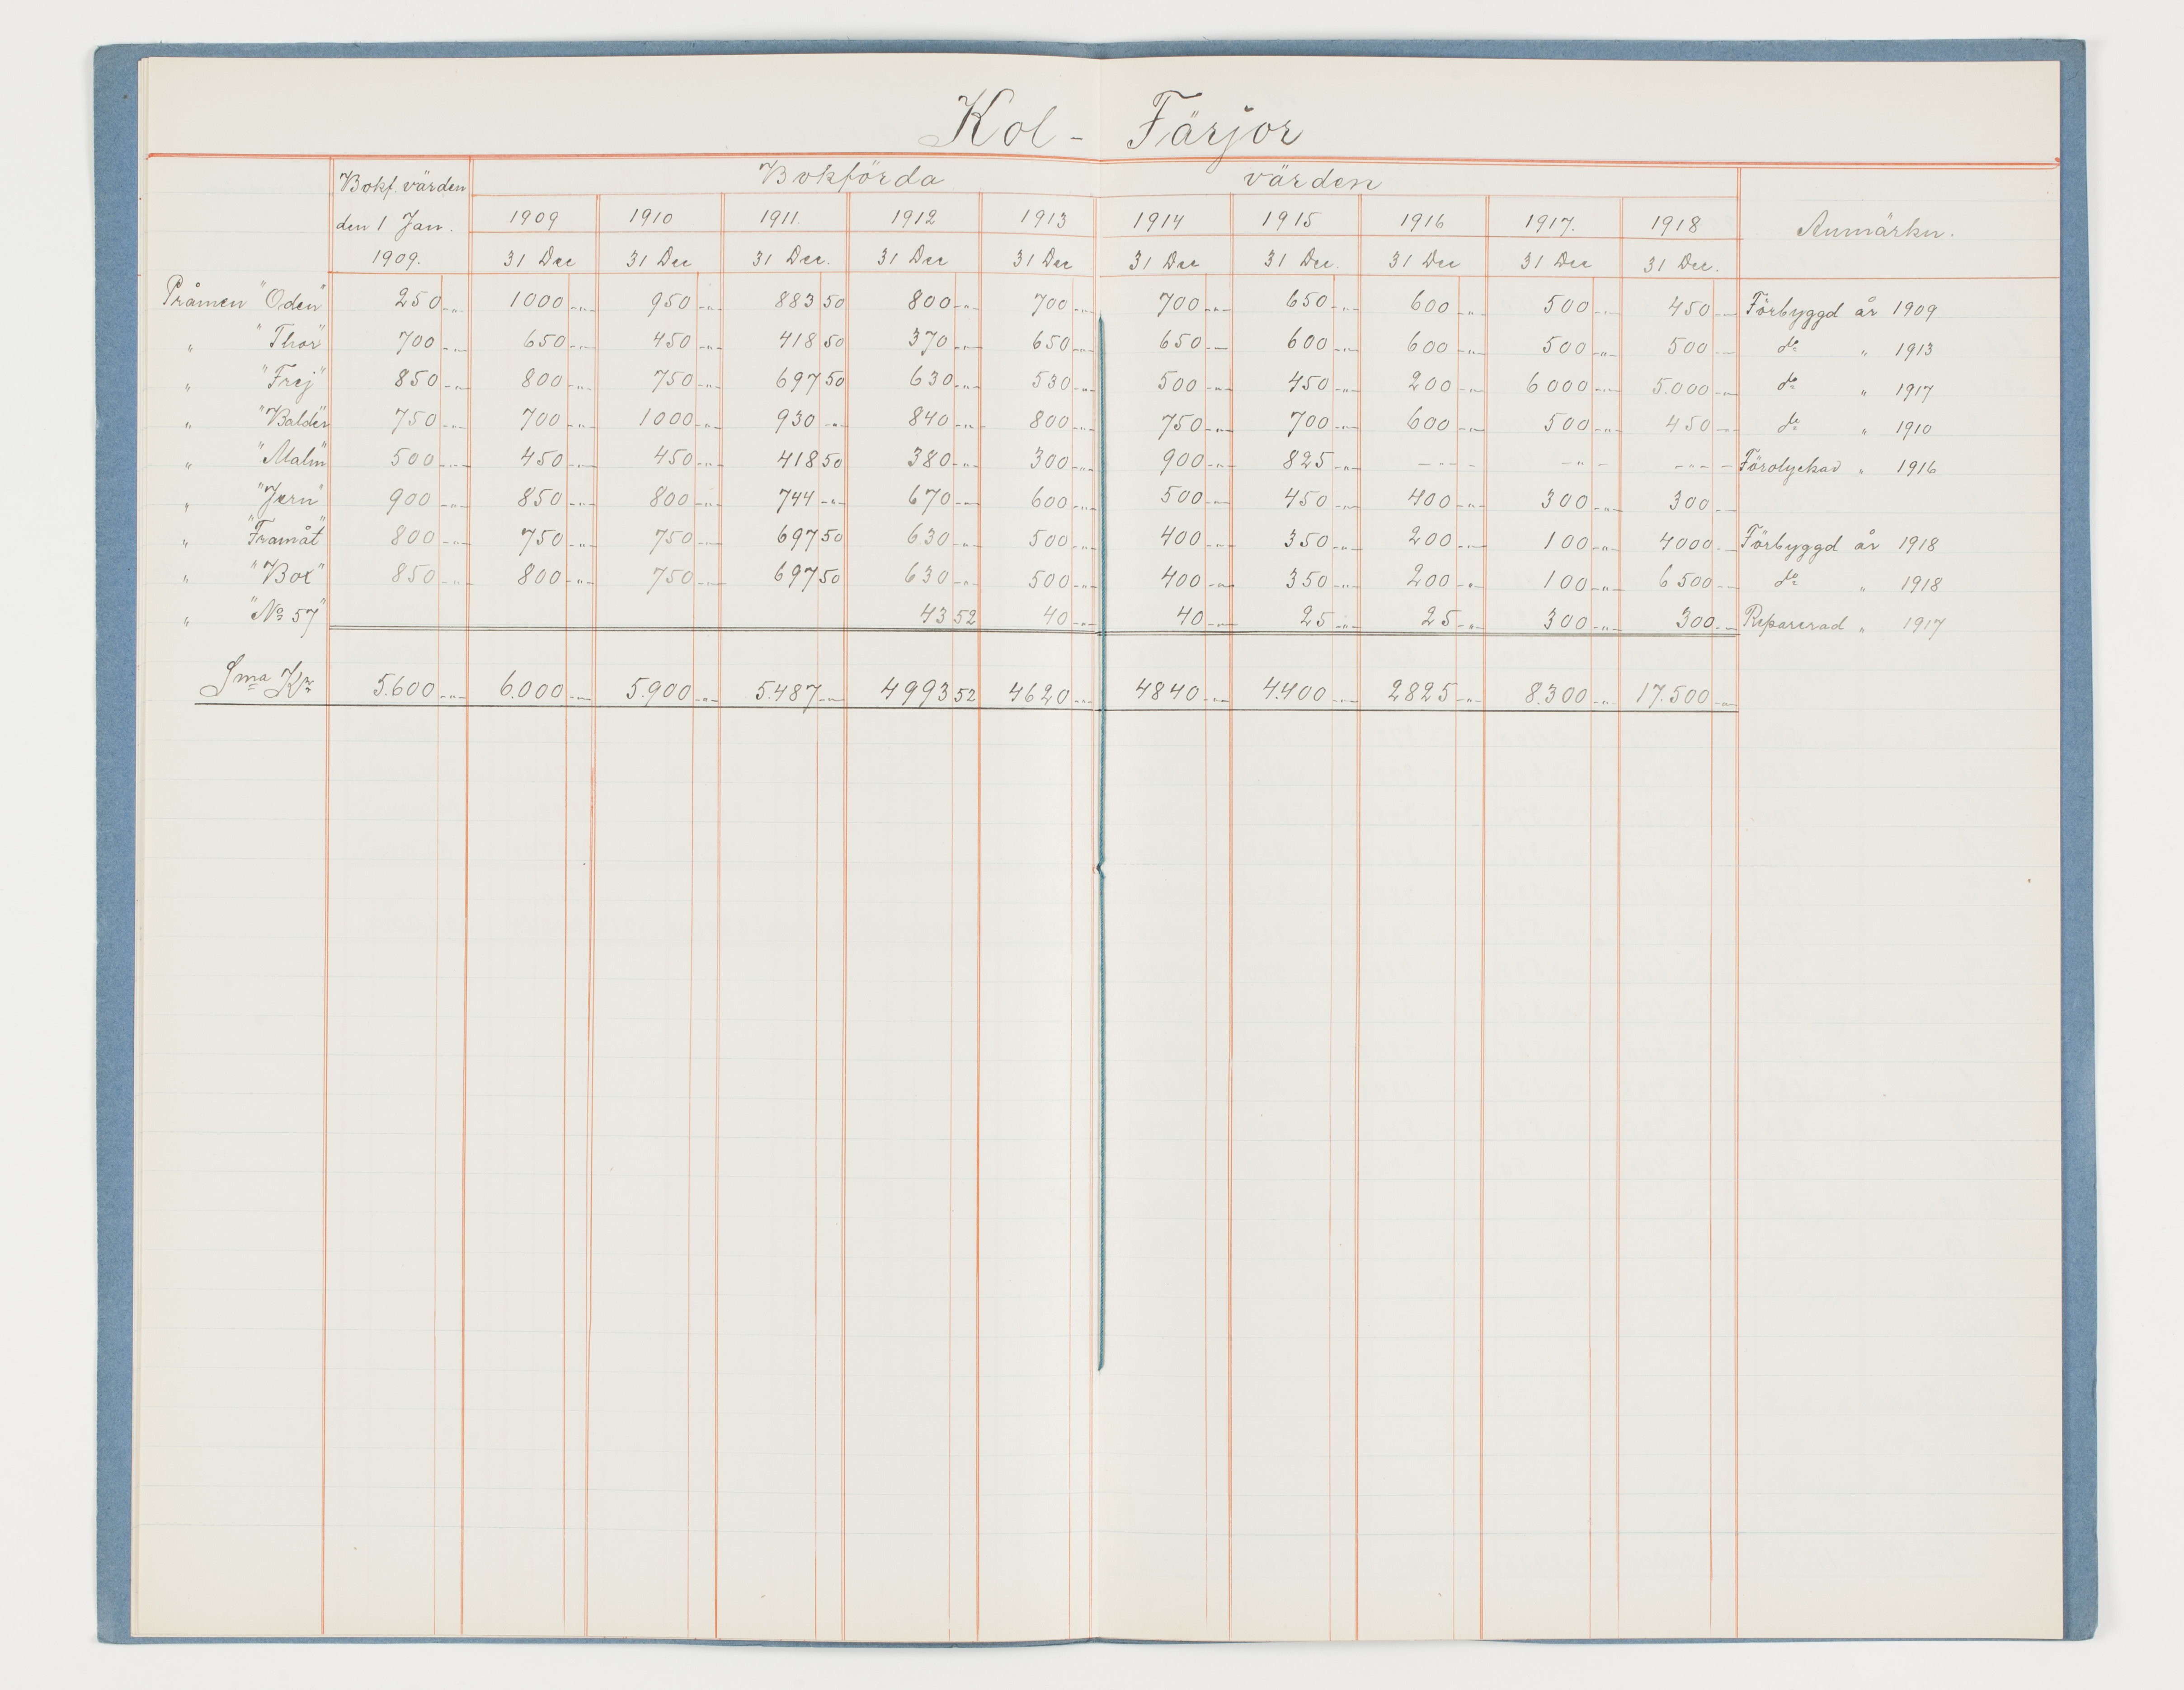 Kol - Färjor
Bokf. värden Bokförda värden
den 1 Jan. 1909 1910 1911. 1912 1913 1914 1915 1916 1917. 1918 Anmärkn.
1909. 31 Dec 31 Dec 31 Dec. 31 Dec 31 Dec 31 Dec 31 Dec. 31 Dec 31 Dec 31 Dec.
Pråmen "Oden" 250 -"- 1000 -"- 950 -"- 883 50 800 -"- 700 -"- 700 -"- 650 -"- 600 -"- 500 -"- 450 -"- Förbyggd år 1909
" "Thor" 700 -"- 650 -"- 450 -"- 418 50 370 -"- 650 -"- 650 -"- 600 -"- 600 -"- 500 -"- 500 -"- do " 1913
" "Frej" 850 -"- 800 -"- 750 -"- 697 50 630 -"- 530 -"- 500 -"- 450 -"- 200 -"- 6000 -"- 5.000 -"- do " 1917
" "Balder" 750 -"- 700 -"- 1000 -"- 930 -"- 840 -"- 800 -"- 750 -"- 700 -"- 600 -"- 500 -"- 450 -"- do " 1910
" "Malm" 500 -"- 450 -"- 450 -"- 418 50 380 -"- 300 -"- 900 -"- 825 -"- -"- -"- -"- Förolyckad " 1916
" "Jern" 900 -"- 850 -"- 800 -"- 744 -"- 670 -"- 600 -"- 500 -"- 450 -"- 400 -"- 300 -"- 300 -"-
" "Framåt" 800 -"- 750 -"- 750 -"- 697 50 630 -"- 500 -"- 400 -"- 350 -"- 200 -"- 100 -"- 4000 -"- Förbyggd år 1918
" "Box" 850 -"- 800 -"- 750 -"- 697 50 630 -"- 500 -"- 400 -"- 350 -"- 200 -"- 100 -"- 6500 -"- do " 1918
" "No 57" 43 52 40 -"- 40 -"- 25 -"- 25 -"- 300 -"- 300 -"- Reparerad " 1917
Sma Kr 5.600 -"- 6.000 -"- 5.900 -"- 5.487 -"- 4993 52 4620 -"- 4840 -"- 4.400 -"- 2825 -"- 8.300 -"- 17.500 -"-